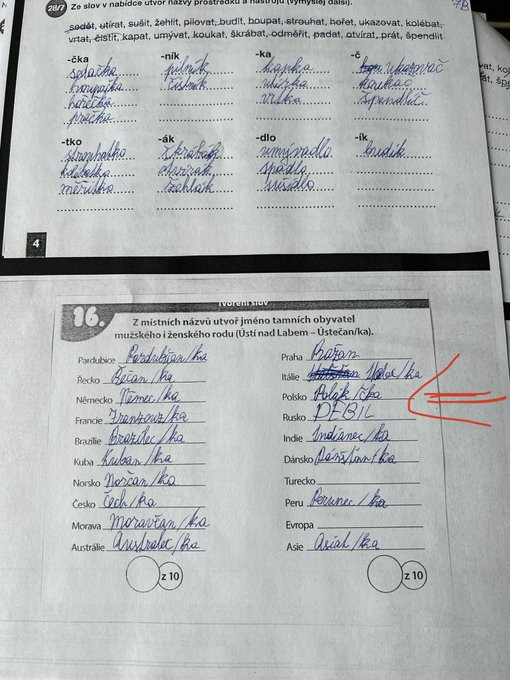 28/7 Ze slov v nabídce utvoř názvy prostředků a nástrojů (vymýšlej další).
sedět, utírat, sušit, žehlit, pilovat, budit, houpat, strouhat, hořet, ukazovat, kolébat,
vrtat, čistit, kapat, umývat, koukat, škrábat, odměřit, padat, otvírat, prát, špendlit
-čka -ník -ka -č
sedačka pilník kapka ukazovač
houpačka čistník koukač
pračka vrtka špendlič
-tko -ák -dlo -ík
strouhatko škrabák umývadlo budík
otvírák
měřítko žehlák sušidlo
4
Tvoření slov
16. Z místních názvů utvoř jméno tamních obyvatel
mužského i ženského rodu (Ústí nad Labem – Ústečan/ka).
Pardubice Pardubičan/ka Praha Pražan
Řecko Řečan/ka Itálie Ital/ka
Německo Němec/ka Polsko Polák/čka
Francie Francouz/ka Rusko DEBIL
Brazílie Brazilec/ka Indie Indiánec/ka
Kuba Kuban/ka Dánsko Dánšťan/ka
Norsko Norčan/ka Turecko
Česko Čech/ka Peru Perunec/ka
Morava Moravčan/ka Evropa
Austrálie Australec/ka Asie Asiat/ka
z 10 z 10